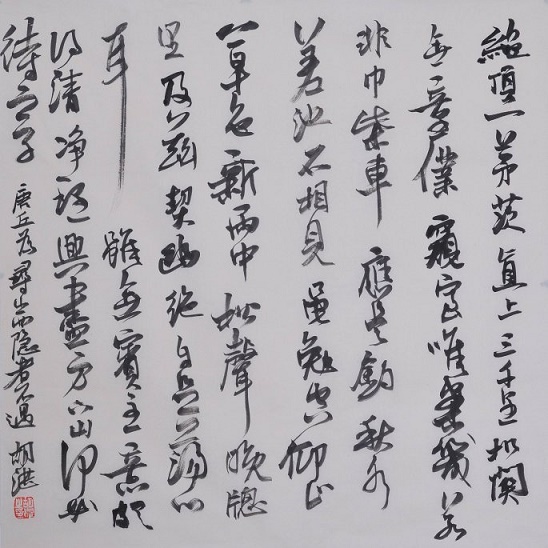 絕頂一茅茨直上三十里扣關
無童僕窺室唯案幾若
非巾柴車應是釣秋水
差池不相見黽勉空仰止
草色新雨中松聲晚牕
里及茲契幽絕自足蕩心
耳雖無賓主意頗
得清净理興盡方下山何必
待之子 唐丘為尋西山隱者不遇 胡